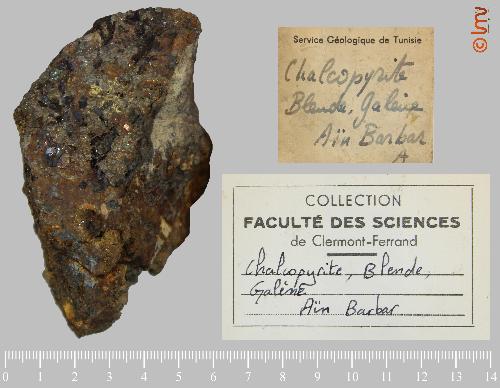 © lmv
Service Géologique de Tunisie
Chalcopyrite
Blende, Galène
Aïn Barbar
A
COLLECTION
FACULTÉ DES SCIENCES
de Clermont-Ferrand
Chalcopyrite, Blende,
Galène
Aïn Barbar
0 1 2 3 4 5 6 7 8 9 10 11 12 13 14